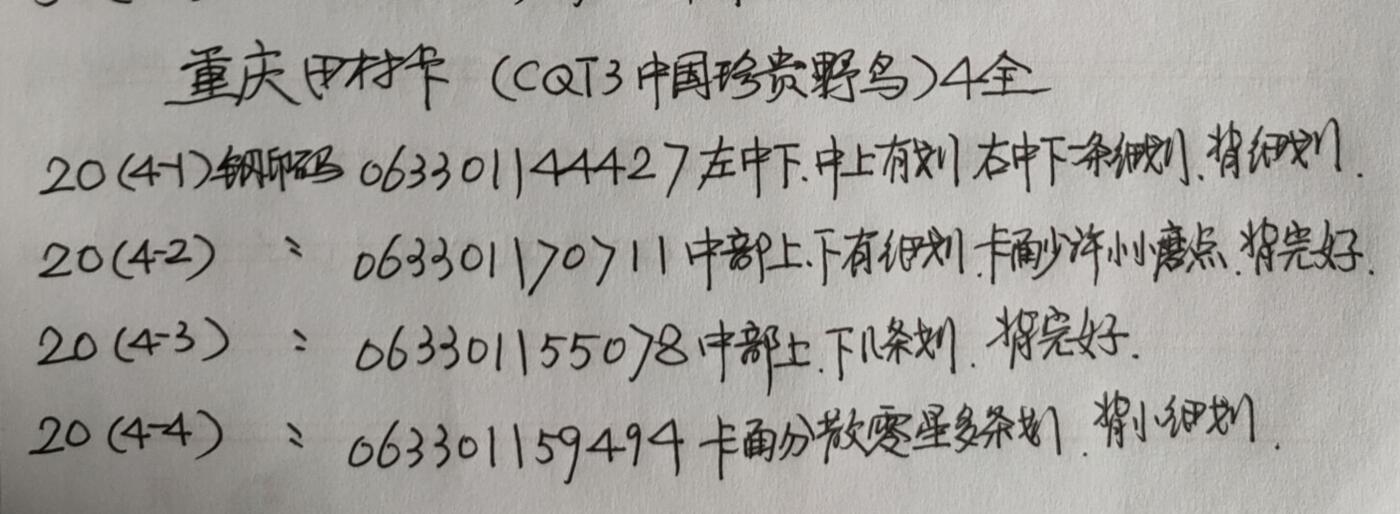 重庆田村卡（CQT3中国珍贵野鸟）4全
20(4-1)钢印码 063301144427左中下.中上有划 右中下一条细划.背细划.
20(4-2) 〃 063301170711中部上.下有细划.卡面少许小小磨点.背完好.
20(4-3) 〃 063301155078中部上.下几条划.背完好.
20(4-4) 〃 063301159494卡面分散零星多条划.背小细划.